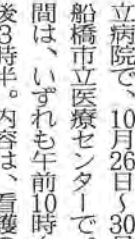 立病院で、10月26日〜30日
船橋市立医療センターで
間は、いずれも午前10時
後3時半。内容は、看護